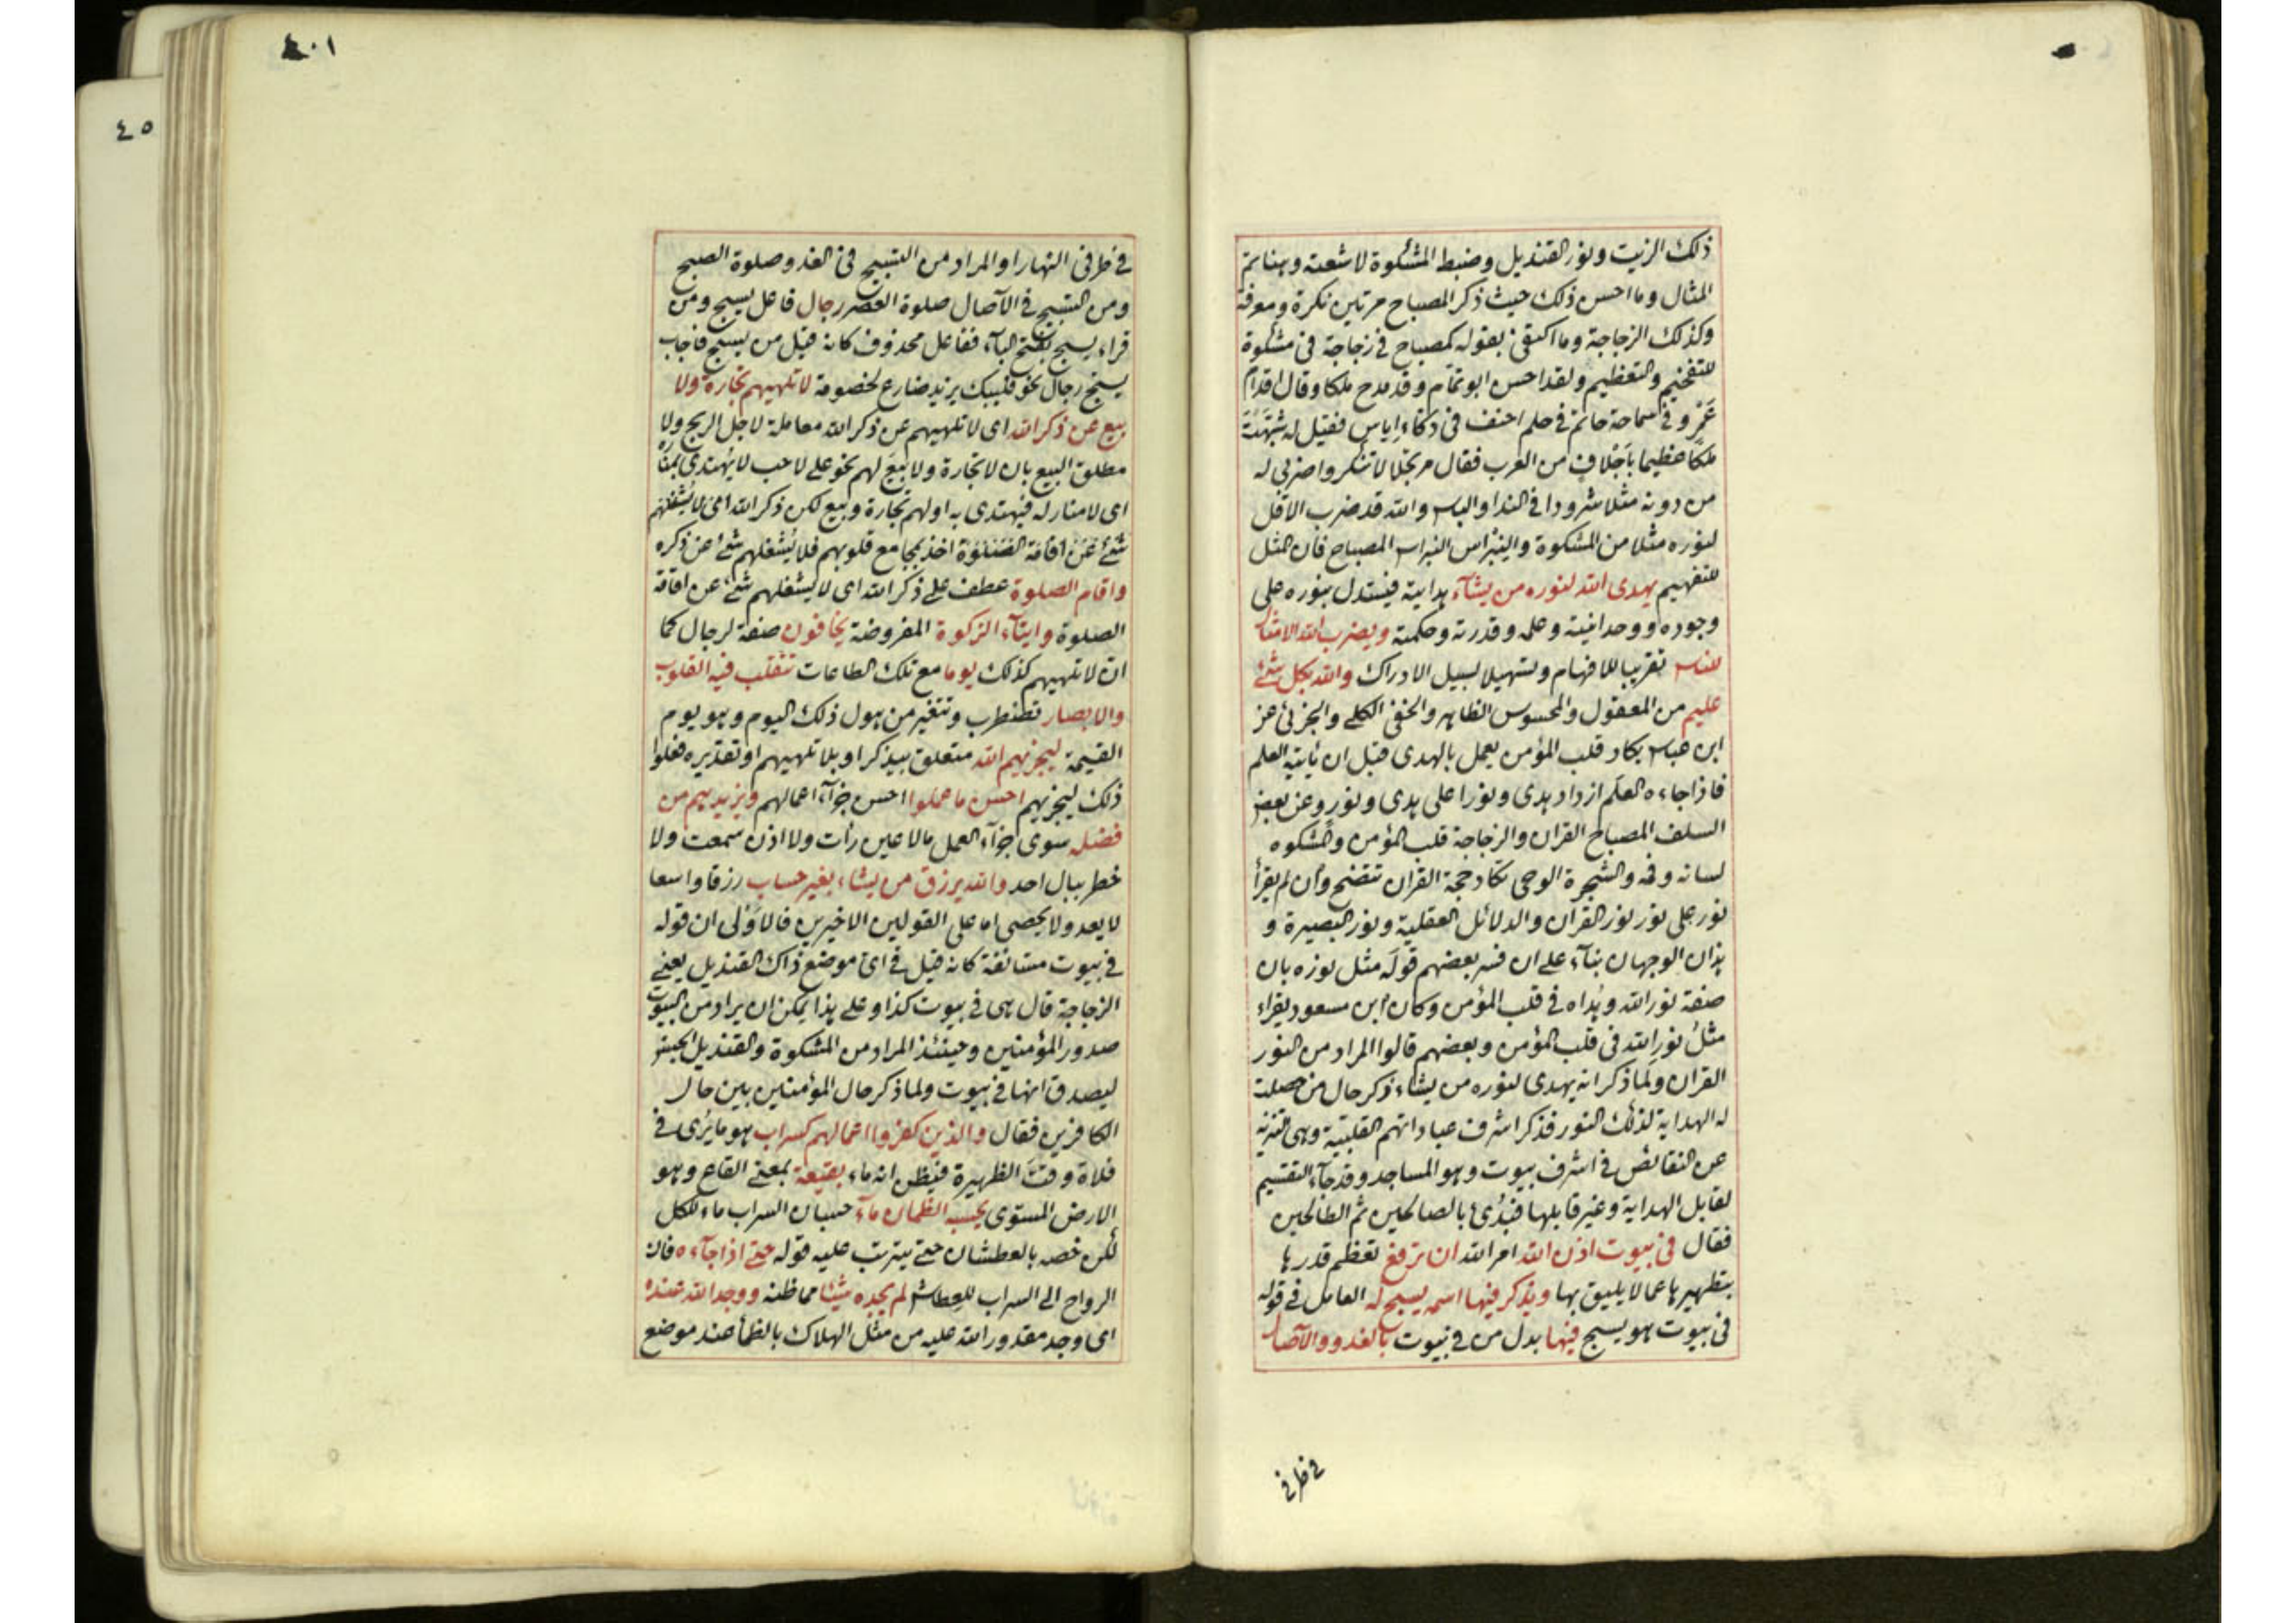 ذلك الزيت ونور القنديل وضبط المشكوة لاشعته وهنا تم
المثال وما احسن ذلك حيث ذكر المصباح مرتين نكرة ومعرفة
وكذلك الزجاجة وما اكتفى بقوله كمصباح في زجاجة في مشكوة
للتفخيم والتعظيم ولقد احسن ابو تمام وقد مدح ملكا وقال اقدام
عمرو في سماحة حاتم في حلم احنف في ذكاء اياس فقيل له شبهت
ملكا عظيما باجلاف من العرب فقال مرتجلا لا تنكروا ضربي له
من دونه مثلا شرودا في الندا والباس والله قد ضرب الاقل
لنوره مثلا من المشكوة والنبراس النبراس المصباح فان المثل
للتفهيم يهدى الله لنوره من يشآء هداية فيستدل بنوره على
وجوده ووحدانيته وعلمه وقدرته وحكمته ويضرب الله الامثال
للناس تقريبا للافهام وتسهيلا لسبيل الادراك والله بكل شئ
عليم من المعقول والمحسوس الظاهر والخفى الكلے والجزئى عن
ابن عباس يكاد قلب المؤمن يعمل بالهدى قبل ان ياتيه العلم
فاذا جاءه العلم ازداد هدى ونورا على هدى ونور وعن بعض
السلف المصباح القران والزجاجة قلب المؤمن والمشكوه
لسانه وفمه والشجرة الوحى تكاد حجة القران تتضح وان لم يقرأ
نور على نور نور القرآن والدلائل العقلية ونور البصيرة و
هذان الوجهان بنآء على ان فسر بعضهم قوله مثل نوره بان
صفة نور الله وهداه في قلب المؤمن وكان ابن مسعود يقراء
مثل نور الله في قلب المؤمن وبعضهم قالوا المراد من النور
القران ولما ذكر انه يهدى لنوره من يشاء ذكر حال من حصلت
له الهداية لذلك النور فذكر اشرف عباداتهم القلبية وهى تنزيه
عن النقائص في اشرف بيوت وهو المساجد وقد جآء التقسيم
لقابل الهداية وغير قابلها فبدئ بالصالحين ثم الطالحين
فقال فى بيوت اذن الله امر الله ان ترفع تعظم قدرها
بتطهيرها عما لا يليق بها ويذكر فيها اسمه يسبح له العامل في قوله
في بيوت هو يسبح فيها بدل من في بيوت بالغدو والآصال
في طرفي
٤٠١
٤٥
في طرفى النهار او المراد من التسبيح في الغدو صلوة الصبح
ومن التسبيح في الآصال صلوة العصر رجال فاعل يسبح ومن
قراء يسبح بفتح البآء ففاعل محذوف كانه قيل من يسبح فاجاب
يسبح رجال نحو فليبك يزيد ضارع لخصومة لا تلهيهم تجارة ولا
بيع عن ذكر الله اى لا تلهيهم عن ذكر الله معاملة لاجل الربح ولا
مطلق البيع بان لا تجارة ولا بيع لهم نحو على لاحب لا يهتدى بمناره
اى لا منار له فيهتدى به او لهم تجارة وبيع لكن ذكر الله اى لا يشغلهم
شئ عن اقامة الصلوة اخذ بمجامع قلوبهم فلا يشغلهم شئ عن ذكره
واقام الصلوة عطف على ذكر الله اى لا يشغلهم شئ عن اقامة
الصلوة وايتآء الزكوة المفروضة يخافون صفة لرجال كما
ان لا تلهيهم كذلك يوما مع تلك الطاعات تتقلب فيه القلوب
والابصار تضطرب وتتغير من هول ذلك اليوم وهو يوم
القيمة ليجزيهم الله متعلق بيذكر او بلا تلهيهم او تقديره فعلوا
ذلك ليجزيهم احسن ما عملوا احسن جزآء اعمالهم ويزيدهم من
فضله سوى جزآء العمل مالا عين رأت ولا اذن سمعت ولا
خطر ببال احد والله يرزق من يشاء بغير حساب رزقا واسعا
لا يعد ولا يحصى اما على القولين الاخيرين فالاولى ان قوله
في بيوت مستانفة كانه قيل في اى موضع ذاك القنديل يعنے
الزجاجة قال هى في بيوت كذا وعلى هذا يمكن ان يراد من البيوت
صدور المؤمنين وحينئذ المراد من المشكوة والقنديل الجنس
ليصدق انها في بيوت ولما ذكر حال المؤمنين بين حال
الكافرين فقال والذين كفروا اعمالهم كسراب هو ما يرى في
فلاة وقت الظهيرة فيظن انه ماء بقيعة بمعنے القاع وهو
الارض المستوى يحسبه الظمان مآء حسبان السراب ماء للكل
لكن خصه بالعطشان حتے يترتب عليه قوله حتے اذا جآءه فان
الرواح الى السراب للعطاش لم يجده شيئا مما ظنه ووجد الله عنده
اى وجد مقدور الله عليه من مثل الهلاك بالظمأ عند موضع